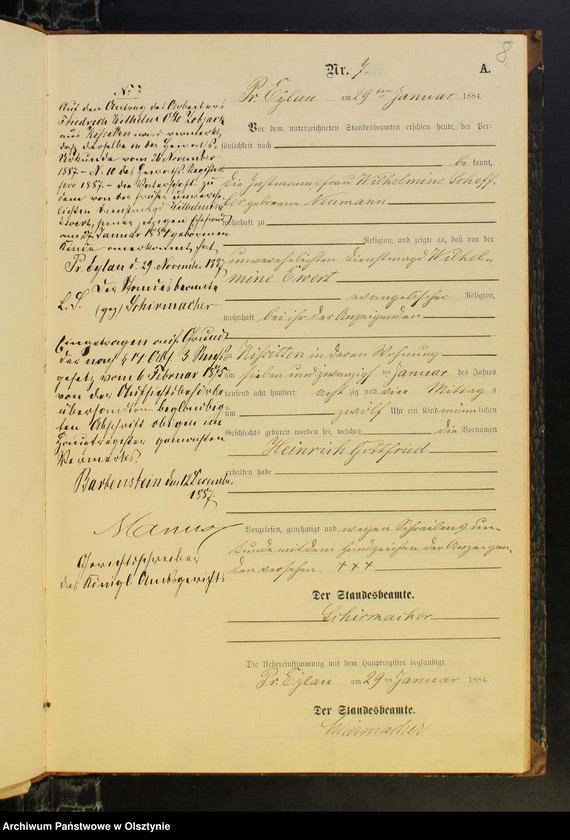 8
Nr. 7. A.
Pr. Eylau am 29ten Januar 1884.
Vor dem unterzeichneten Standesbeamten erschien heute, der Per-
sönlichkeit nach
be kannt,
die Instmannsfrau Wilhelmine
geborene Neumann
wohnhaft zu
Religion, und zeigte an, daß von der
unverehelichten Dienstmagd Wilhel-
mine Ewert
evangelischer Religion,
wohnhaft bei ihr der Anzeigenden
zu Kissitten in deren Wohnung
am sieben und zwanzigsten Januar des Jahres
tausend acht hundert achtzig und vier Mittags
um zwölf Uhr ein Kind männlichen
Geschlechts geboren worden sei, welches die Vornamen
Heinrich Gottfried
erhalten habe
Vorgelesen, genehmigt und wegen Schreibensun-
kunde mit dem Handzeichen der Anzeigen-
den versehen. +++
Der Standesbeamte.
Schirmacher
Die Uebereinstimmung mit dem Hauptregister beglaubigt.
Pr. Eylau am 29ten Januar 1884.
Der Standesbeamte.
Schirmacher
No 7
Auf den Antrag des Arbeiters
Friedrich Wilhelm Otto
aus Kissitten wird vermerkt,
daß derselbe in der Heiraths-
Urkunde vom 26 November
1887 - No 10 des Heiraths Registers
pro 1887 - die Vaterschaft zu
dem von der früher unverehe-
lichten Dienstmagd Wilhelmine
Ewert, seiner jetzigen Ehefrau
am 27. Januar 1884 geborenen
Kinde anerkannt hat.
Pr. Eylau d. 29. November 1887
Der Standesbeamte
L. S. (gez) Schirmacher
Eingetragen auf Grund
der nach § 14 Abs. 3 Reichs-
gesetz vom 6 Februar 1875
von der Aufsichtsbehörde
übersandten beglaubig-
ten Abschrift obigen im
Hauptregister gemachten
Vermerks.
Bartenstein den 12 December
1887.
Gerichtsschreiber
des Königl. Amtsgerichts
Archiwum Państwowe w Olsztynie